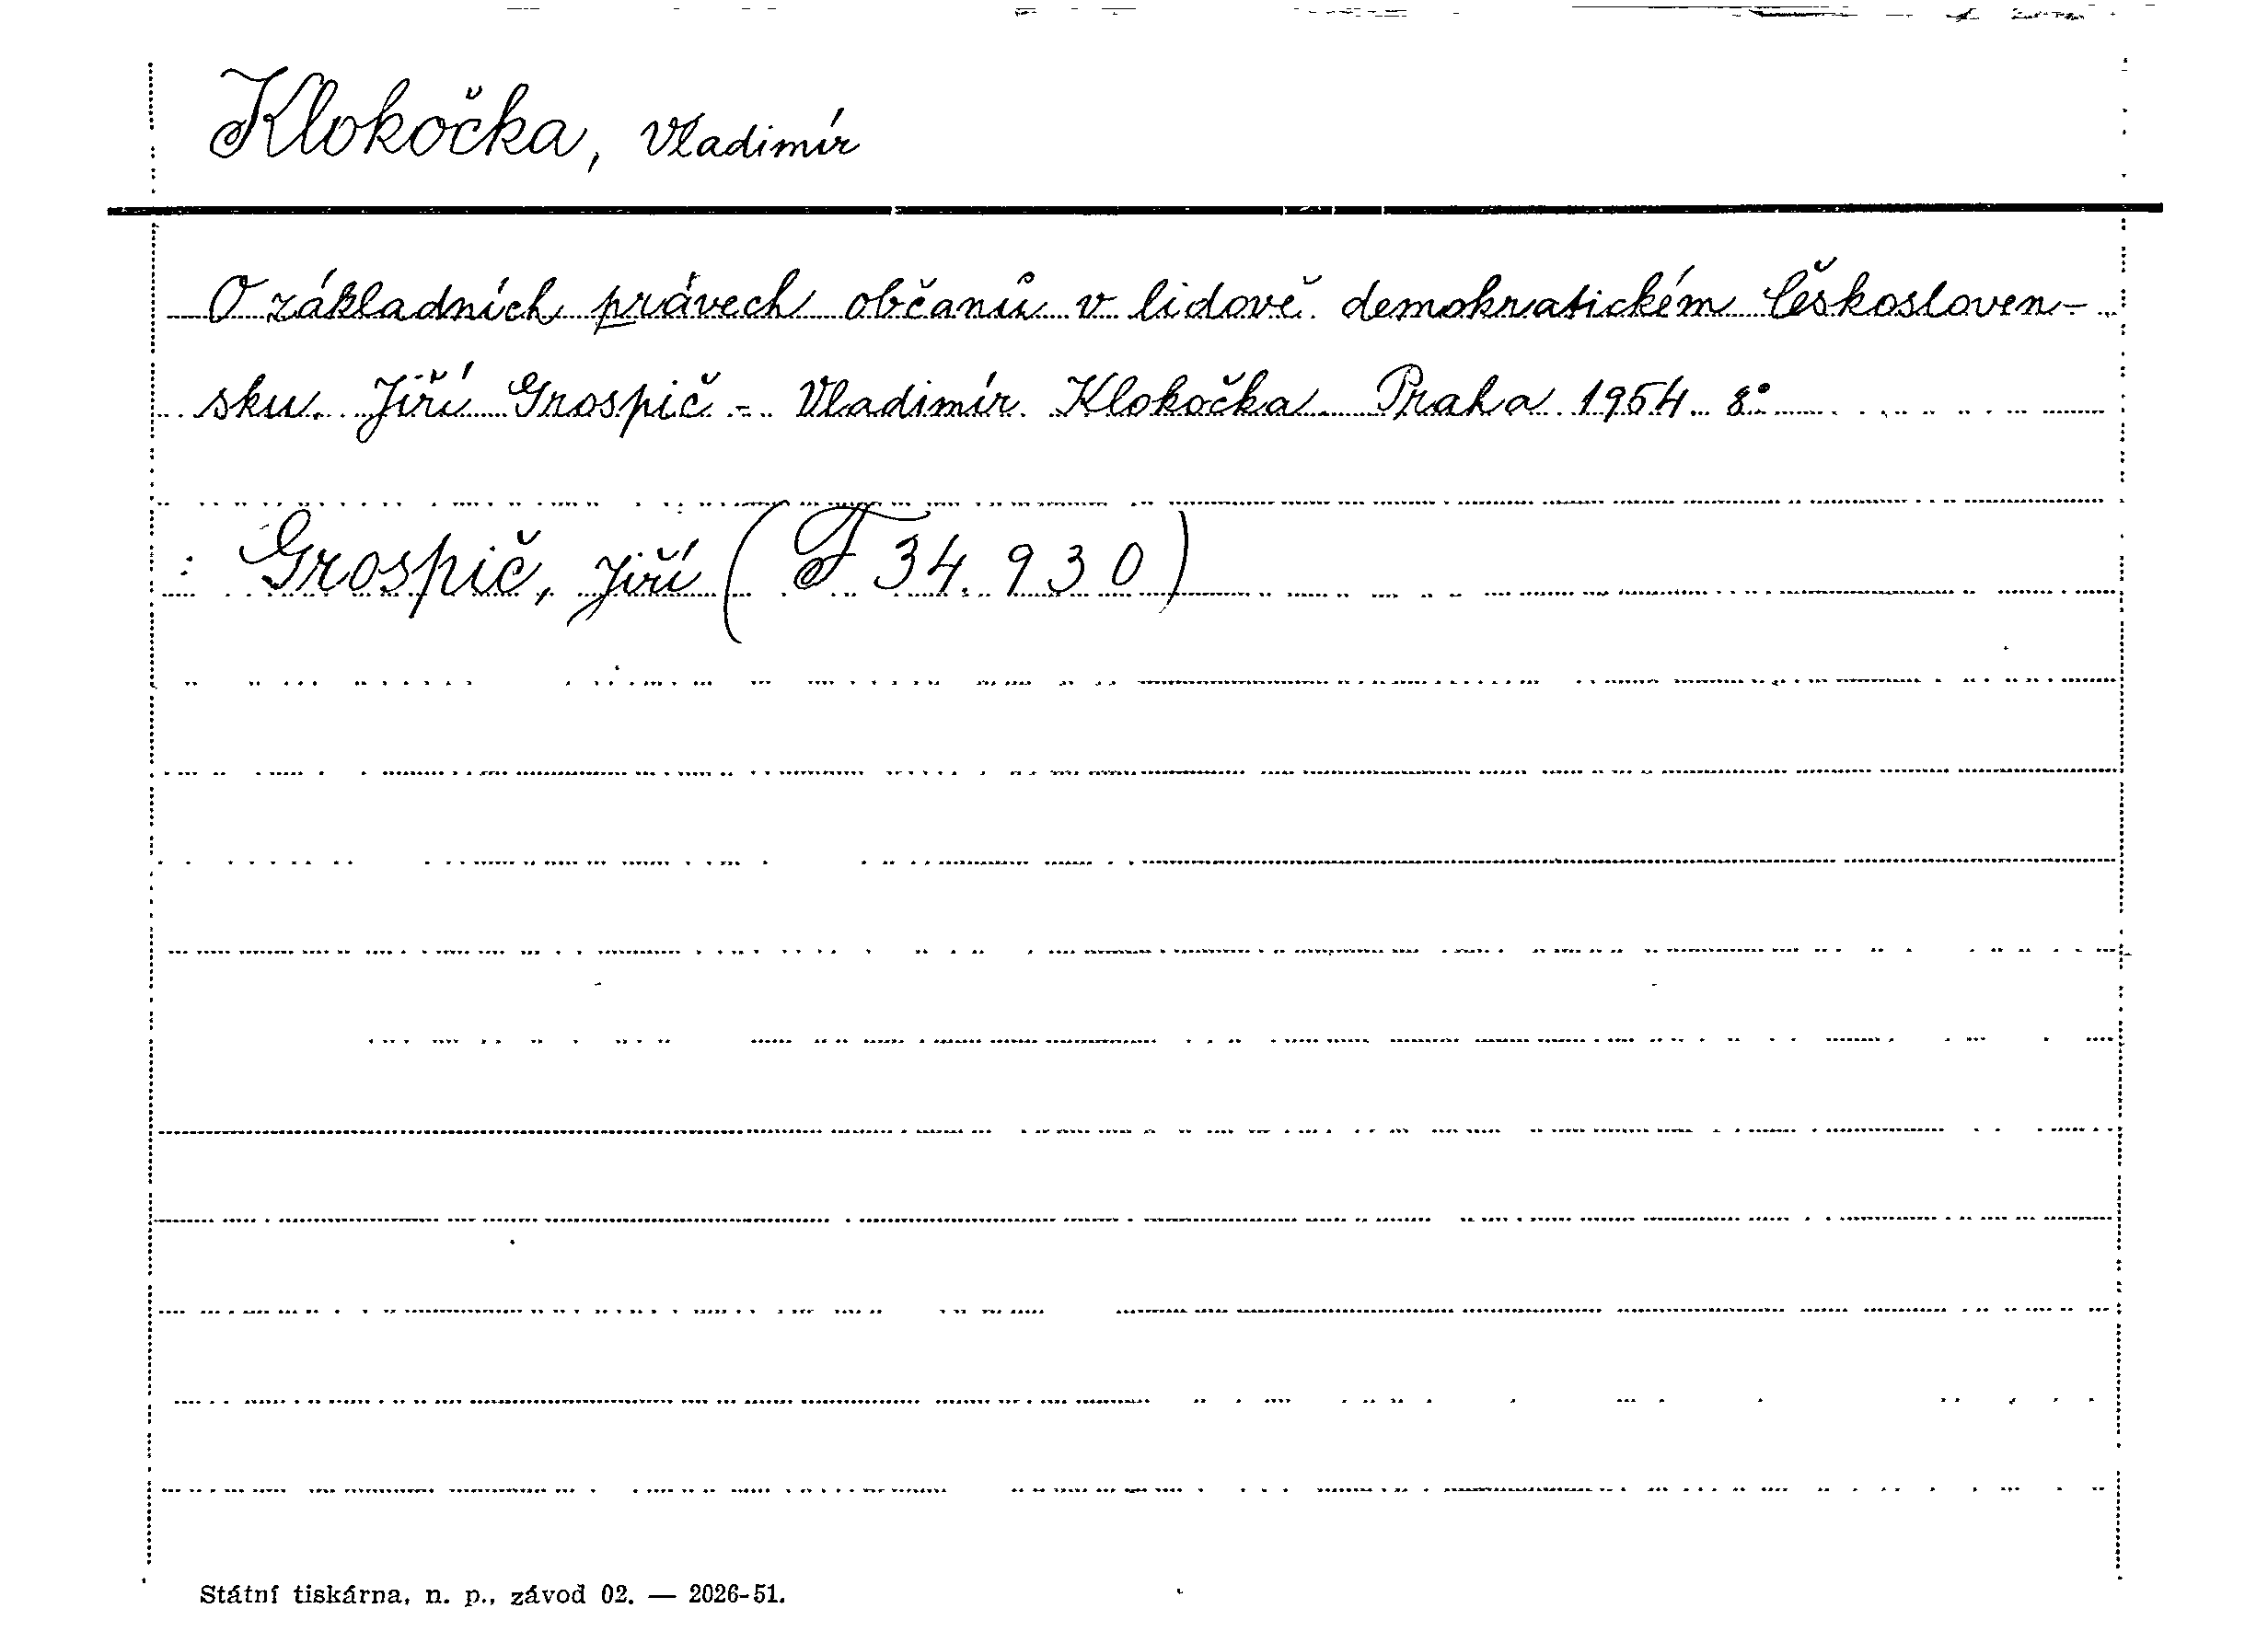 Klokočka, Vladimír
O základních právech občanů v lidově demokratickém Českosloven-
sku. Jiří Grospič - Vladimír Klokočka. Praha 1954. 8°
: Grospič, Jiří (F 34.930)
Státní tiskárna, n. p., závod 02. — 2026-51.